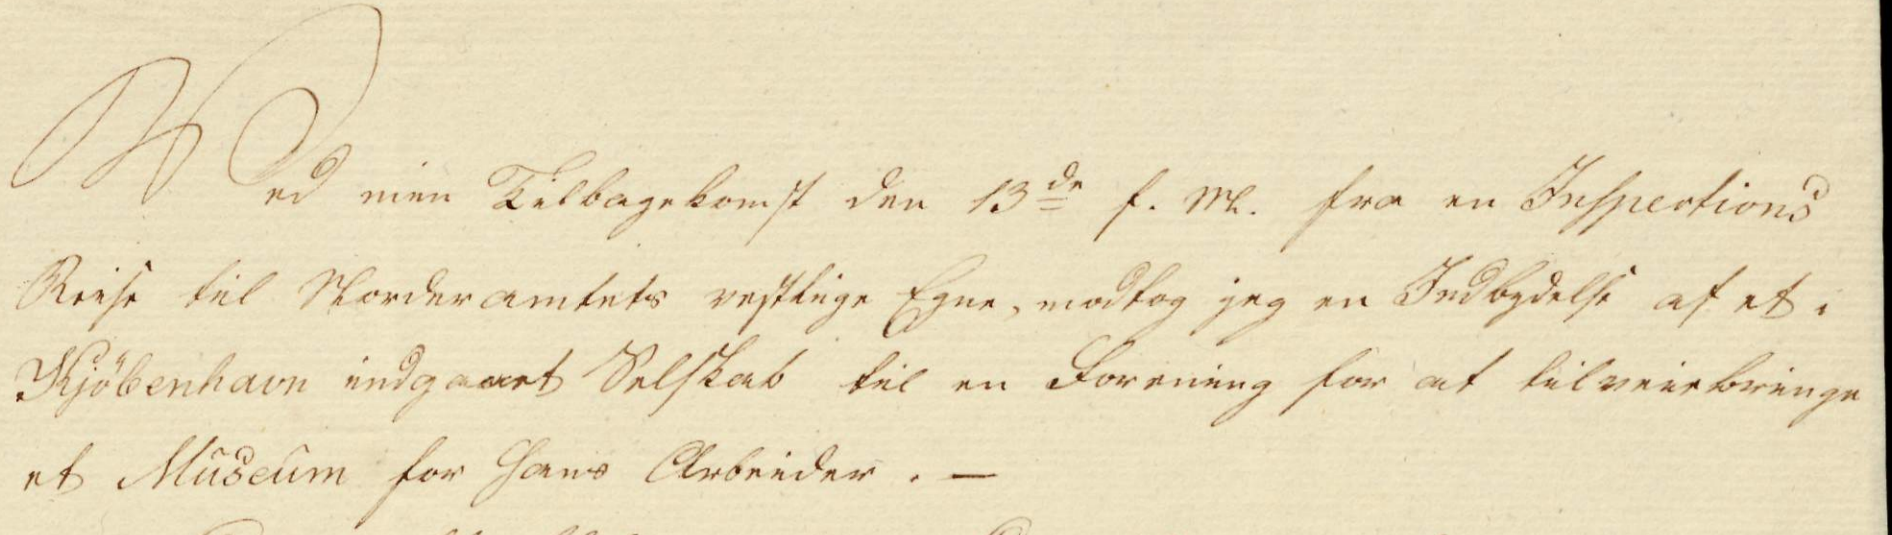 Ved min Tilbagekomst den 13de f. M. fra en Inspections
Reise til Norderamtets vestlige Egne, modtog jeg en Indbydelse af et i
Kjöbenhavn indgaaet Selskab til en Forening for at tilveiebringe
et Museum for Hans Arbeider. —